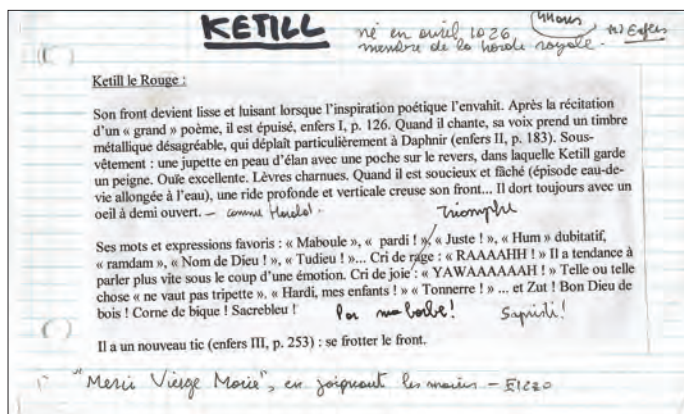 KETILL né en avril 1026,
membre de la horde royale.
Ketill le Rouge :
Son front devient lisse et luisant lorsque l'inspiration poétique l'envahit. Après la récitation
d'un « grand » poème, il est épuisé, enfers I, p. 126. Quand il chante, sa voix prend un timbre
métallique désagréable, qui déplaît particulièrement à Daphnir (enfers II, p. 183). Sous-
vêtement : une jupette en peau d'élan avec une poche sur le revers, dans laquelle Ketill garde
un peigne. Ouïe excellente. Lèvres charnues. Quand il est soucieux et fâché (épisode eau-de-
vie allongée à l'eau), une ride profonde et verticale creuse son front... Il dort toujours avec un
oeil à demi ouvert. – comme
Triomphe
Ses mots et expressions favoris : « Maboule », « pardi ! », « Juste ! », « Hum » dubitatif,
« ramdam », « Nom de Dieu ! », « Tudieu ! »... Cri de rage : « RAAAAHH ! » Il a tendance à
parler plus vite sous le coup d'une émotion. Cri de joie : « YAWAAAAAAH ! » Telle ou telle
chose « ne vaut pas tripette ». « Hardi, mes enfants ! » « Tonnerre ! » ... et Zut ! Bon Dieu de
bois ! Corne de bique ! Sacrebleu ! Par ma barbe! Sapristi!
Il a un nouveau tic (enfers III, p. 253) : se frotter le front.
"Merci Vierge Marie", en joignant les mains –